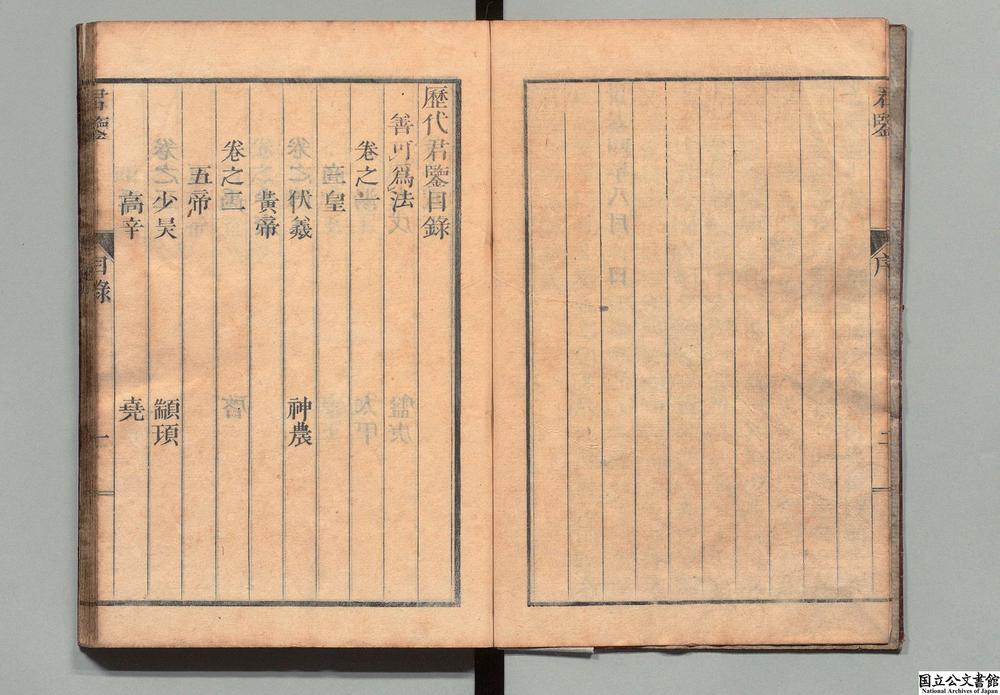 君鑒
序
二
歷代君鑒目錄
善可爲法
卷之一
三皇
伏羲
神農
黃帝
卷之二
五帝
少昊
顓頊
高辛
堯
君鑒
目錄
一
国立公文書館
National Archives of Japan